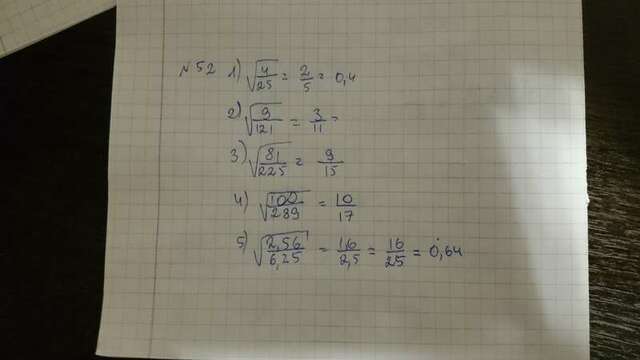 №52 1) √(4/25) = 2/5 = 0,4
2) √(9/121) = 3/11 =
3) √(81/225) = 9/15
4) √(100/289) = 10/17
5) √(2,56/6,25) = 1,6/2,5 = 16/25 = 0,64